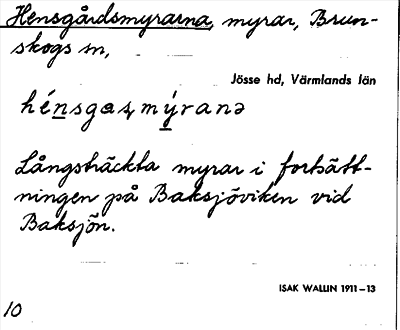 Hensgårdsmyrarna, myrar, Brun-
skogs sn,
Jösse hd, Värmlands län
Långsträckta myrar i fortsätt-
ningen på Baksjöviken vid
Baksjön.
ISAK WALLIN 1911–13
10